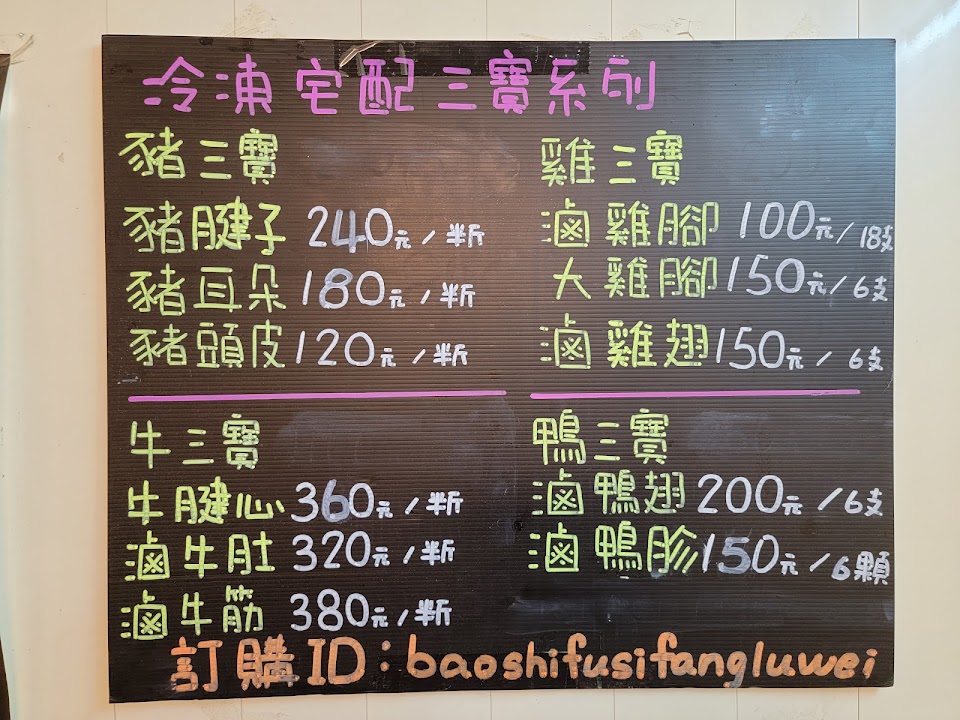 冷凍宅配三寶系列
豬三寶
豬腱子 240元/半斤
豬耳朵 180元/半斤
豬頭皮 120元/半斤
雞三寶
滷雞腳 100元/18支
大雞腳 150元/6支
滷雞翅 150元/6支
牛三寶
牛腱心 360元/半斤
滷牛肚 320元/半斤
滷牛筋 380元/半斤
鴨三寶
滷鴨翅 200元/6支
滷鴨胗 150元/6顆
訂購ID:baoshifusifangluwei